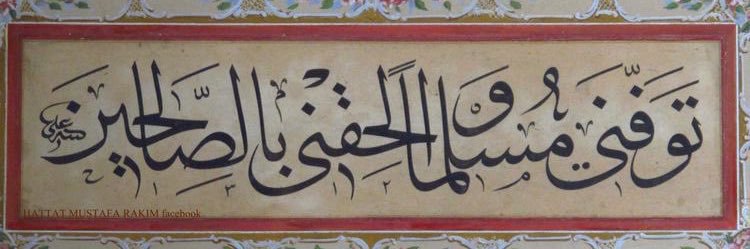 تَوَفَّنِي مُسْلِمًا وَأَلْحِقْنِي بِالصَّالِحِينَ
HATTAT MUSTAFA RAKIM facebook